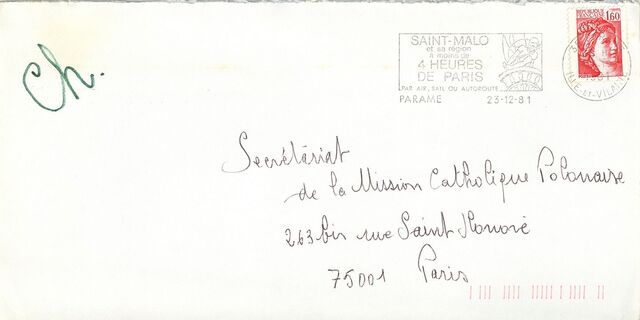 Ch.
SAINT-MALO
et sa région
à moins de
4 HEURES
DE PARIS
PAR AIR, RAIL OU AUTOROUTE
PARAME 23-12-81
REPUBLIQUE
FRANÇAISE
1,60
ILLE-ET-VILAINE
Secrétariat
de la Mission Catholique Polonaise
263 bis rue Saint Honoré
75001 Paris